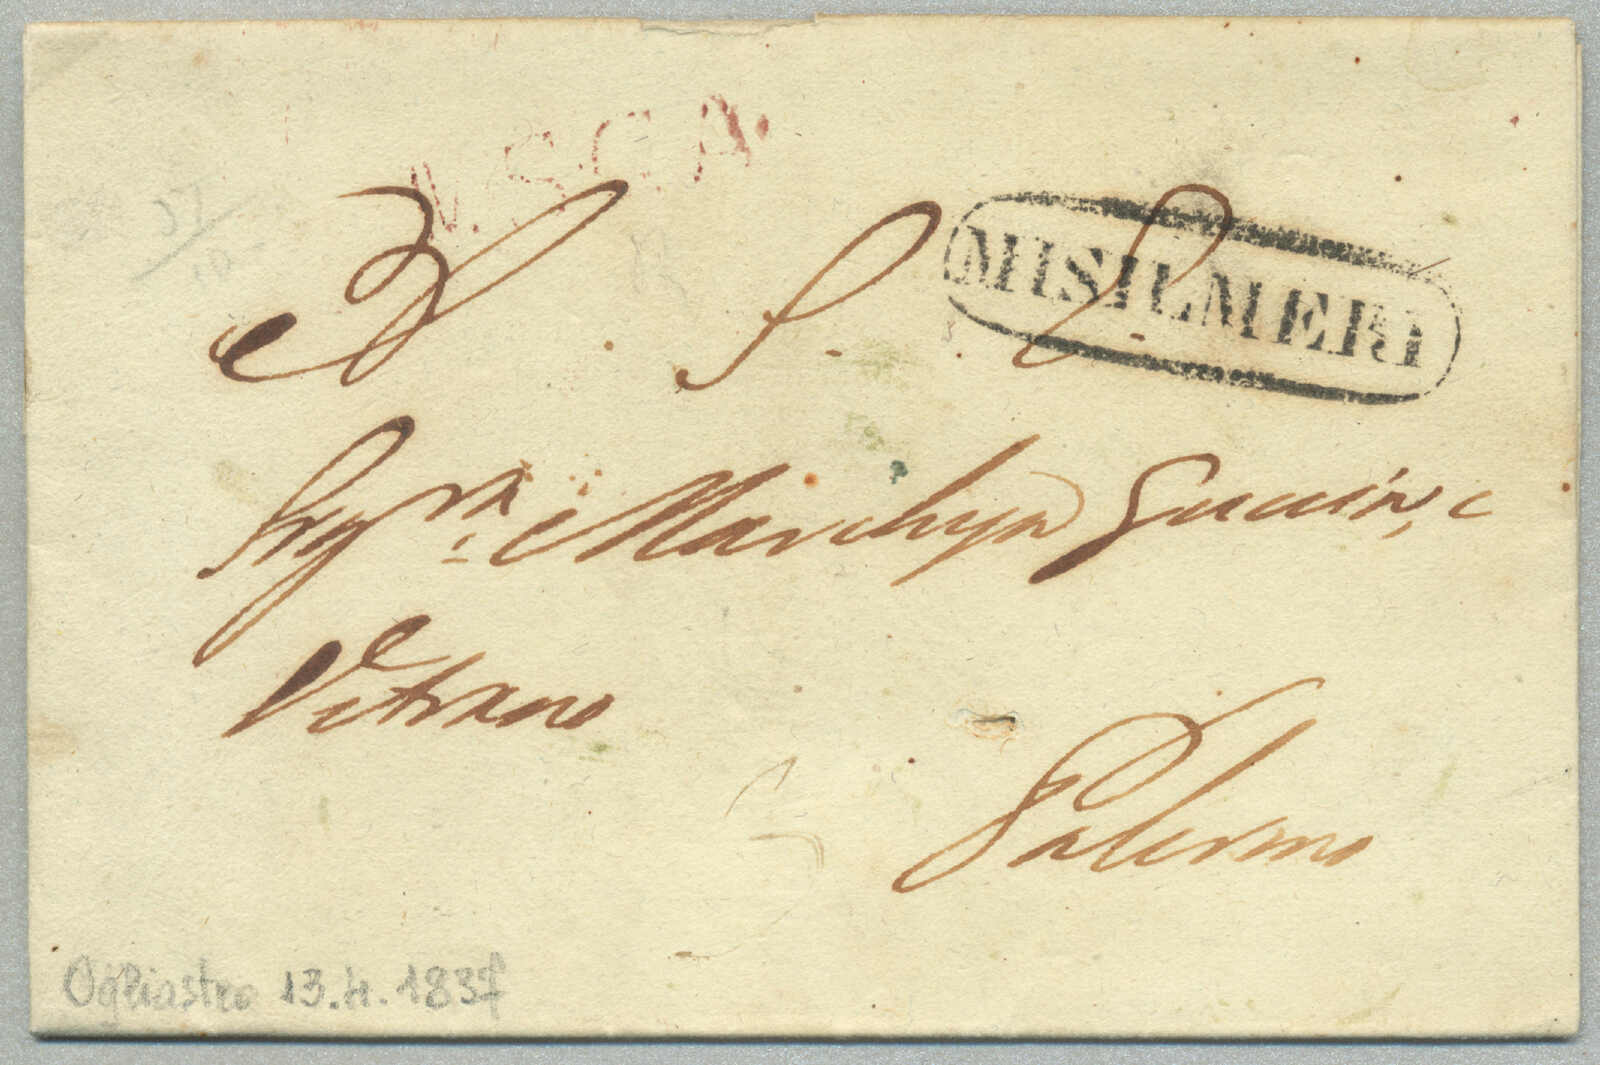 V. SCA.
A. S. E.
MISILMERI
Sig.ra Marchesa Guccia, e
Vitrano
Palermo
Ogliastro 13.4.1837